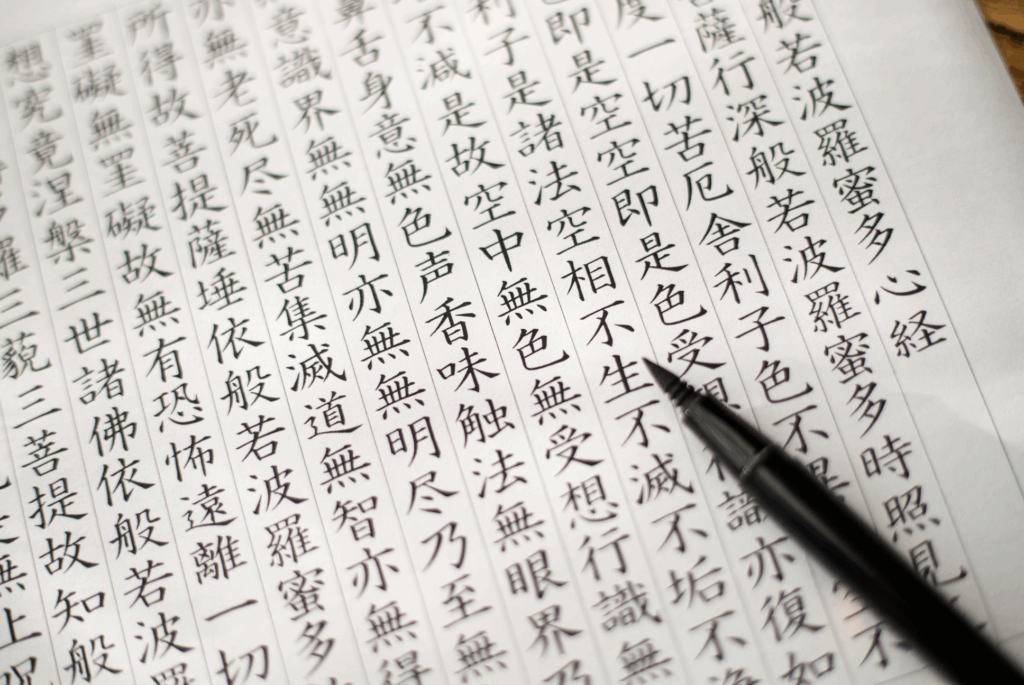 般若波羅蜜多心経
薩行深般若波羅蜜多時照見
度一切苦厄舎利子色不異空不
即是空空即是色受想行識亦復如
利子是諸法空相不生不滅不垢不
不減是故空中無色無受想行識無
鼻舌身意無色声香味触法無眼界乃
意識界無無明亦無無明尽乃至無
亦無老死尽無苦集滅道無智亦無得
所得故菩提薩埵依般若波羅蜜多
罣礙無罣礙故無有恐怖遠離一切
想究竟涅槃三世諸佛依般若波羅
羅三藐三菩提故知般
無上呪